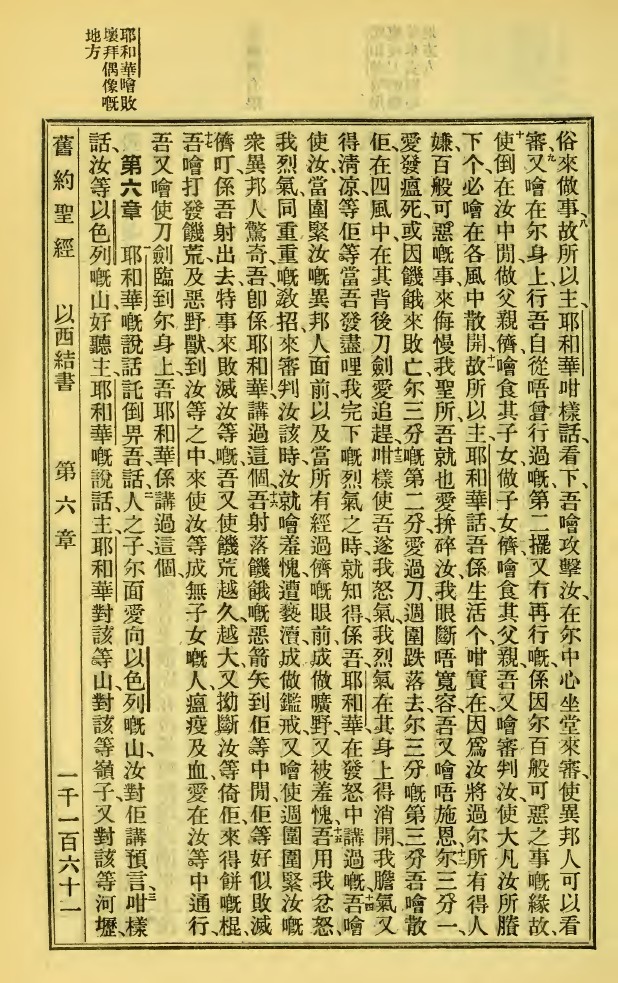 俗來做事、故所以主、耶和華咁樣話、看下、吾噲攻擊汝、在尔中心坐堂來審、使異邦人可以看
審、又噲在尔身上、行吾自從唔曾行過嘅、第二擺又冇再行嘅、係因尔百般可惡之事嘅緣故、
使倒在汝中間、做父親儕噲食其子女、做子女儕噲食其父親、吾又噲審判汝、使大凡汝所賸
下个、必噲在各風中散開、故所以主耶和華話、吾係生活个、咁實在因爲汝將過尔所有得人
嫌、百般可惡嘅事、來侮慢我聖所、吾就也愛拚碎汝、我眼斷唔寬容、吾又噲唔施恩、尔三分一、
愛發瘟死、或因饑餓來敗亡、尔三分嘅第二分、愛過刀、週圍跌落去、尔三分嘅第三分、吾噲散
佢在四風中、在其背後刀劍愛追趕、咁樣使吾遂我怒氣、我烈氣在其身上得消開、我膽氣又
得清涼等、佢等當吾發盡哩我完下嘅烈氣之時、就知得係吾耶和華在發怒中講過嘅、吾噲
使汝、當圍緊汝嘅異邦人面前、以及當所有經過儕嘅眼前、成做曠野、又被羞愧、吾用我忿怒
我烈氣、同重重嘅敎招、來審判汝、該時汝就噲羞愧、遭褻瀆、成做鑑戒、又噲使週圍圍緊汝嘅
衆異邦人驚奇、吾卽係耶和華、講過這個、吾射落饑餓嘅惡箭矢到佢等中間、佢等好似敗滅
儕叮係吾射出去、特事來敗滅汝等嘅、吾又使饑荒越久越大、又拗斷汝等倚佢來得餅嘅棍、
吾噲打發饑荒、及惡野獸、到汝等之中、來使汝等成無子女嘅人、瘟疫及血、愛在汝等中通行、
吾又噲使刀劍臨到尔身上、吾耶和華係講過這個、
第六章 耶和華嘅說話託倒畀吾、話、人之子、尔面愛向以色列嘅山、汝對佢講預言、咁樣
話、汝等以色列嘅山、好聽主、耶和華嘅說話、主、耶和華對該等山、對該等嶺子、又對該等河壢、
耶和華噲敗
壞拜偶像嘅
地方
舊約聖經 以西結書 第六章 一千一百六十二
八
九
十
十一
十二
十三
十四
十五
十六
十七
一
二
三